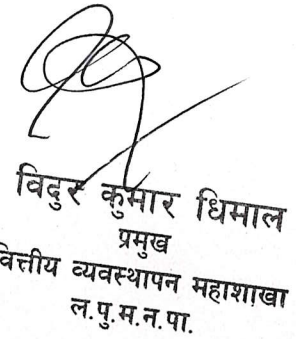 विदुर कुमार धिमाल
प्रमुख
वित्तीय व्यवस्थापन महाशाखा
ल.पु.म.न.पा.